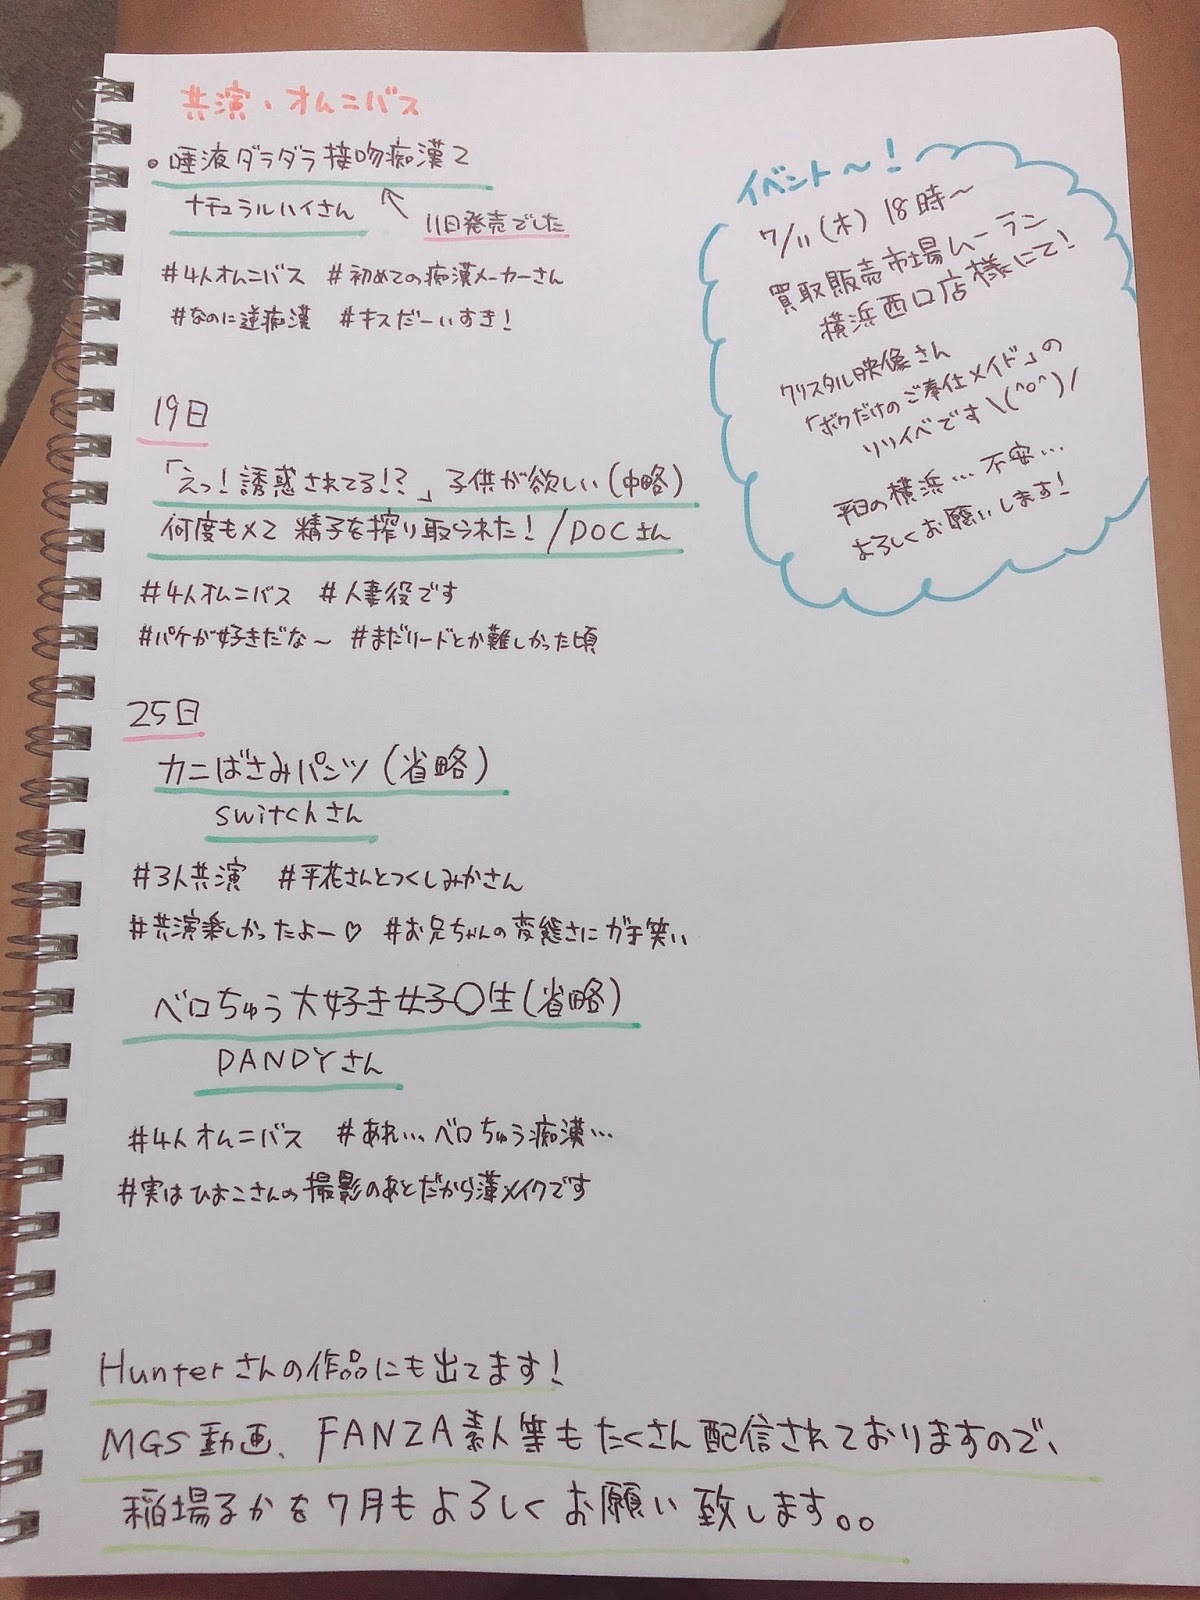 共演・オムニバス
。唾液ダラダラ接吻痴漢2
ナチュラルハイさん
11日発売でした
#4人オムニバス #初めての痴漢メーカーさん
#なのに逆痴漢 #キスだーいすき!
19日
「えっ!誘惑されてる!?」子供が欲しい(中略)
何度もメて精子を搾り取られた!/DOCさん
#4人オムニバス #人妻役です
#パケが好きだな~ #まだリードとか難しかった頃
25日
カニばさみパンツ(省略)
switchさん
#3人共演 #平花さんとつくしみかさん
#共演楽しかったよー♡ #お兄ちゃんの変態さにガチ笑い
ベロちゅう大好き女子〇生(省略)
DANDYさん
#4人オムニバス #あれ…ベロちゅう痴漢…
#実はひよこさんの撮影のあとだから薄メイクです
Hunterさんの作品にも出てます!
MGS動画、FANZA素人等もたくさん配信されておりますので、
稲場るかを7月もよろしくお願い致します。。
イベント~!
7/11(木) 18時~
買取販売市場ムーラン
横浜西口店様にて!
クリスタル映像さん
「ボクだけのご奉仕メイド」の
リリイベです\(^o^)/
平日の横浜…不安…
よろしくお願いします!